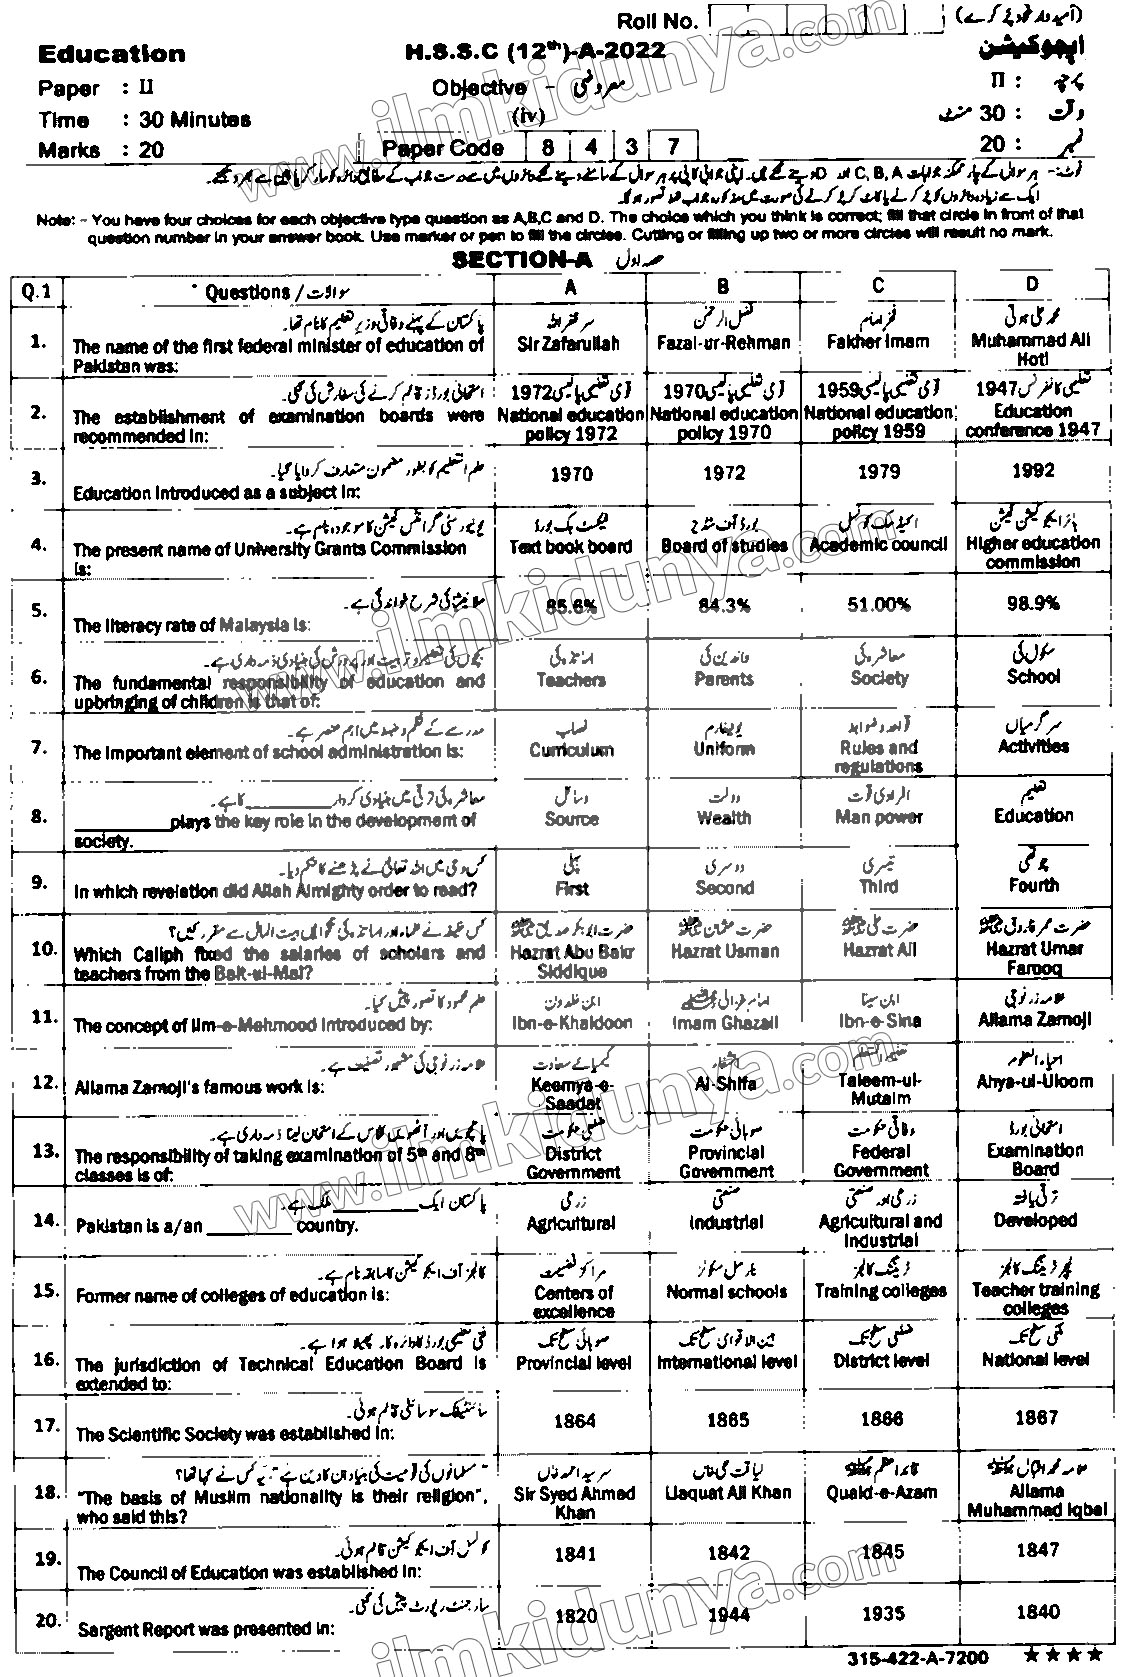 Roll No. (امیدوار خود پُر کرے)
Education H.S.S.C (12th)-A-2022 ایجوکیشن
Paper : II Objective - معروضی پرچہ : II
Time : 30 Minutes (iv) وقت : 30 منٹ
Marks : 20 Paper Code 8 4 3 7 نمبر : 20
نوٹ:- ہر سوال کے چار ممکنہ جوابات A ,B ,C اور D دیئے گئے ہیں۔
Note: - You have four choices for each objective type question as A,B,C and D. The choice which you think is correct; fill that circle in front of that
question number in your answer book. Use marker or pen to fill the circles. Cutting or filling up two or more circles will result no mark.
SECTION-A حصہ اول
Q.1 Questions / سوالات A B C D
1. پاکستان کے پہلے وفاقی وزیر تعلیم کا نام تھا۔
The name of the first federal minister of education of
Pakistan was:
سر ظفر اللہ
Sir Zafarullah
فضل الرحمٰن
Fazal-ur-Rehman
فخر امام
Fakher Imam
محمد علی ہوتی
Muhammad Ali
Hoti
2. امتحانی بورڈز قائم کرنے کی سفارش کی گئی۔
The establishment of examination boards were
recommended in:
قومی تعلیمی پالیسی 1972
National education
policy 1972
قومی تعلیمی پالیسی 1970
National education
policy 1970
قومی تعلیمی پالیسی 1959
National education
policy 1959
تعلیمی کانفرنس 1947
Education
conference 1947
3. علم التعلیم کو بطور مضمون متعارف کروایا گیا۔
Education introduced as a subject in:
1970 1972 1979 1992
4. یونیورسٹی گرانٹس کمیشن کا موجودہ نام ہے۔
The present name of University Grants Commission
is:
ٹیکسٹ بک بورڈ
Text book board
بورڈ آف سٹڈیز
Board of studies
اکیڈمک کونسل
Academic council
ہائر ایجوکیشن کمیشن
Higher education
commission
5. ملائیشیا کی شرح خواندگی ہے۔
The literacy rate of Malaysia is:
85.6% 84.3% 51.00% 98.9%
6. بچوں کی تعلیم و تربیت اور پرورش کی بنیادی ذمہ داری ہے۔
The fundamental responsibility of education and
upbringing of children is that of:
اساتذہ کی
Teachers
والدین کی
Parents
معاشرہ کی
Society
سکول کی
School
7. مدرسے کے نظم و ضبط میں اہم عنصر ہے۔
The important element of school administration is:
نصاب
Curriculum
یونیفارم
Uniform
قواعد و ضوابط
Rules and
regulations
سرگرمیاں
Activities
8. معاشرہ کی ترقی میں بنیادی کردار ________ کا ہے۔
________plays the key role in the development of
society.
وسائل
Source
دولت
Wealth
افرادی قوت
Man power
تعلیم
Education
9. کس وحی میں اللہ تعالیٰ نے پڑھنے کا حکم دیا۔
In which revelation did Allah Almighty order to read?
پہلی
First
دوسری
Second
تیسری
Third
چوتھی
Fourth
10. کس خلیفہ نے علماء اور اساتذہ کی تنخواہیں بیت المال سے مقرر کیں؟
Which Caliph fixed the salaries of scholars and
teachers from the Bait-ul-Mal?
حضرت ابوبکر صدیق
Hazrat Abu Bakr
Siddique
حضرت عثمان
Hazrat Usman
حضرت علی
Hazrat Ali
حضرت عمر فاروق
Hazrat Umar
Farooq
11. علم محمود کا تصور پیش کیا۔
The concept of Ilm-e-Mehmood introduced by:
ابن خلدون
Ibn-e-Khaldoon
امام غزالی
Imam Ghazali
ابن سینا
Ibn-e-Sina
علامہ زرنوجی
Allama Zarnoji
12. علامہ زرنوجی کی مشہور تصنیف ہے۔
Allama Zarnoji's famous work is:
کیمیائے سعادت
Keemya-e-
Saadat
الشفاء
Al-Shifa
تعلیم المتعلم
Taleem-ul-
Mutalm
احیاء العلوم
Ahya-ul-Uloom
13. پانچویں اور آٹھویں کلاس کے امتحان لینا ذمہ داری ہے۔
The responsibility of taking examination of 5th and 8th
classes is of:
ضلعی حکومت
District
Government
صوبائی حکومت
Provincial
Government
وفاقی حکومت
Federal
Government
امتحانی بورڈ
Examination
Board
14. پاکستان ایک ________ ملک ہے۔
Pakistan is a/an ________ country.
زرعی
Agricultural
صنعتی
Industrial
زرعی اور صنعتی
Agricultural and
Industrial
ترقی یافتہ
Developed
15. کالجز آف ایجوکیشن کا سابقہ نام ہے۔
Former name of colleges of education is:
مراکز فضیلت
Centers of
excellence
نارمل سکولز
Normal schools
ٹریننگ کالجز
Training colleges
ٹیچر ٹریننگ کالجز
Teacher training
colleges
16. فنی تعلیمی بورڈ کا دائرہ کار پھیلا ہوا ہے۔
The jurisdiction of Technical Education Board is
extended to:
صوبائی سطح تک
Provincial level
بین الاقوامی سطح تک
International level
ضلعی سطح تک
District level
ملکی سطح تک
National level
17. سائنٹیفک سوسائٹی قائم ہوئی۔
The Scientific Society was established in:
1864 1865 1866 1867
18. "مسلمانوں کی قومیت کی بنیاد ان کا دین ہے" یہ کس نے کہا تھا؟
"The basis of Muslim nationality is their religion",
who said this?
سر سید احمد خاں
Sir Syed Ahmed
Khan
لیاقت علی خاں
Liaquat Ali Khan
قائد اعظم
Quaid-e-Azam
علامہ محمد اقبال
Allama
Muhammad Iqbal
19. کونسل آف ایجوکیشن قائم ہوئی۔
The Council of Education was established in:
1841 1842 1845 1847
20. سارجنٹ رپورٹ پیش کی گئی۔
Sargent Report was presented in:
1820 1944 1935 1840
315-422-A-7200 ★★★★
www.ilmkidunya.com
www.ilmkidunya.com
www.ilmkidunya.com
www.ilmkidunya.com